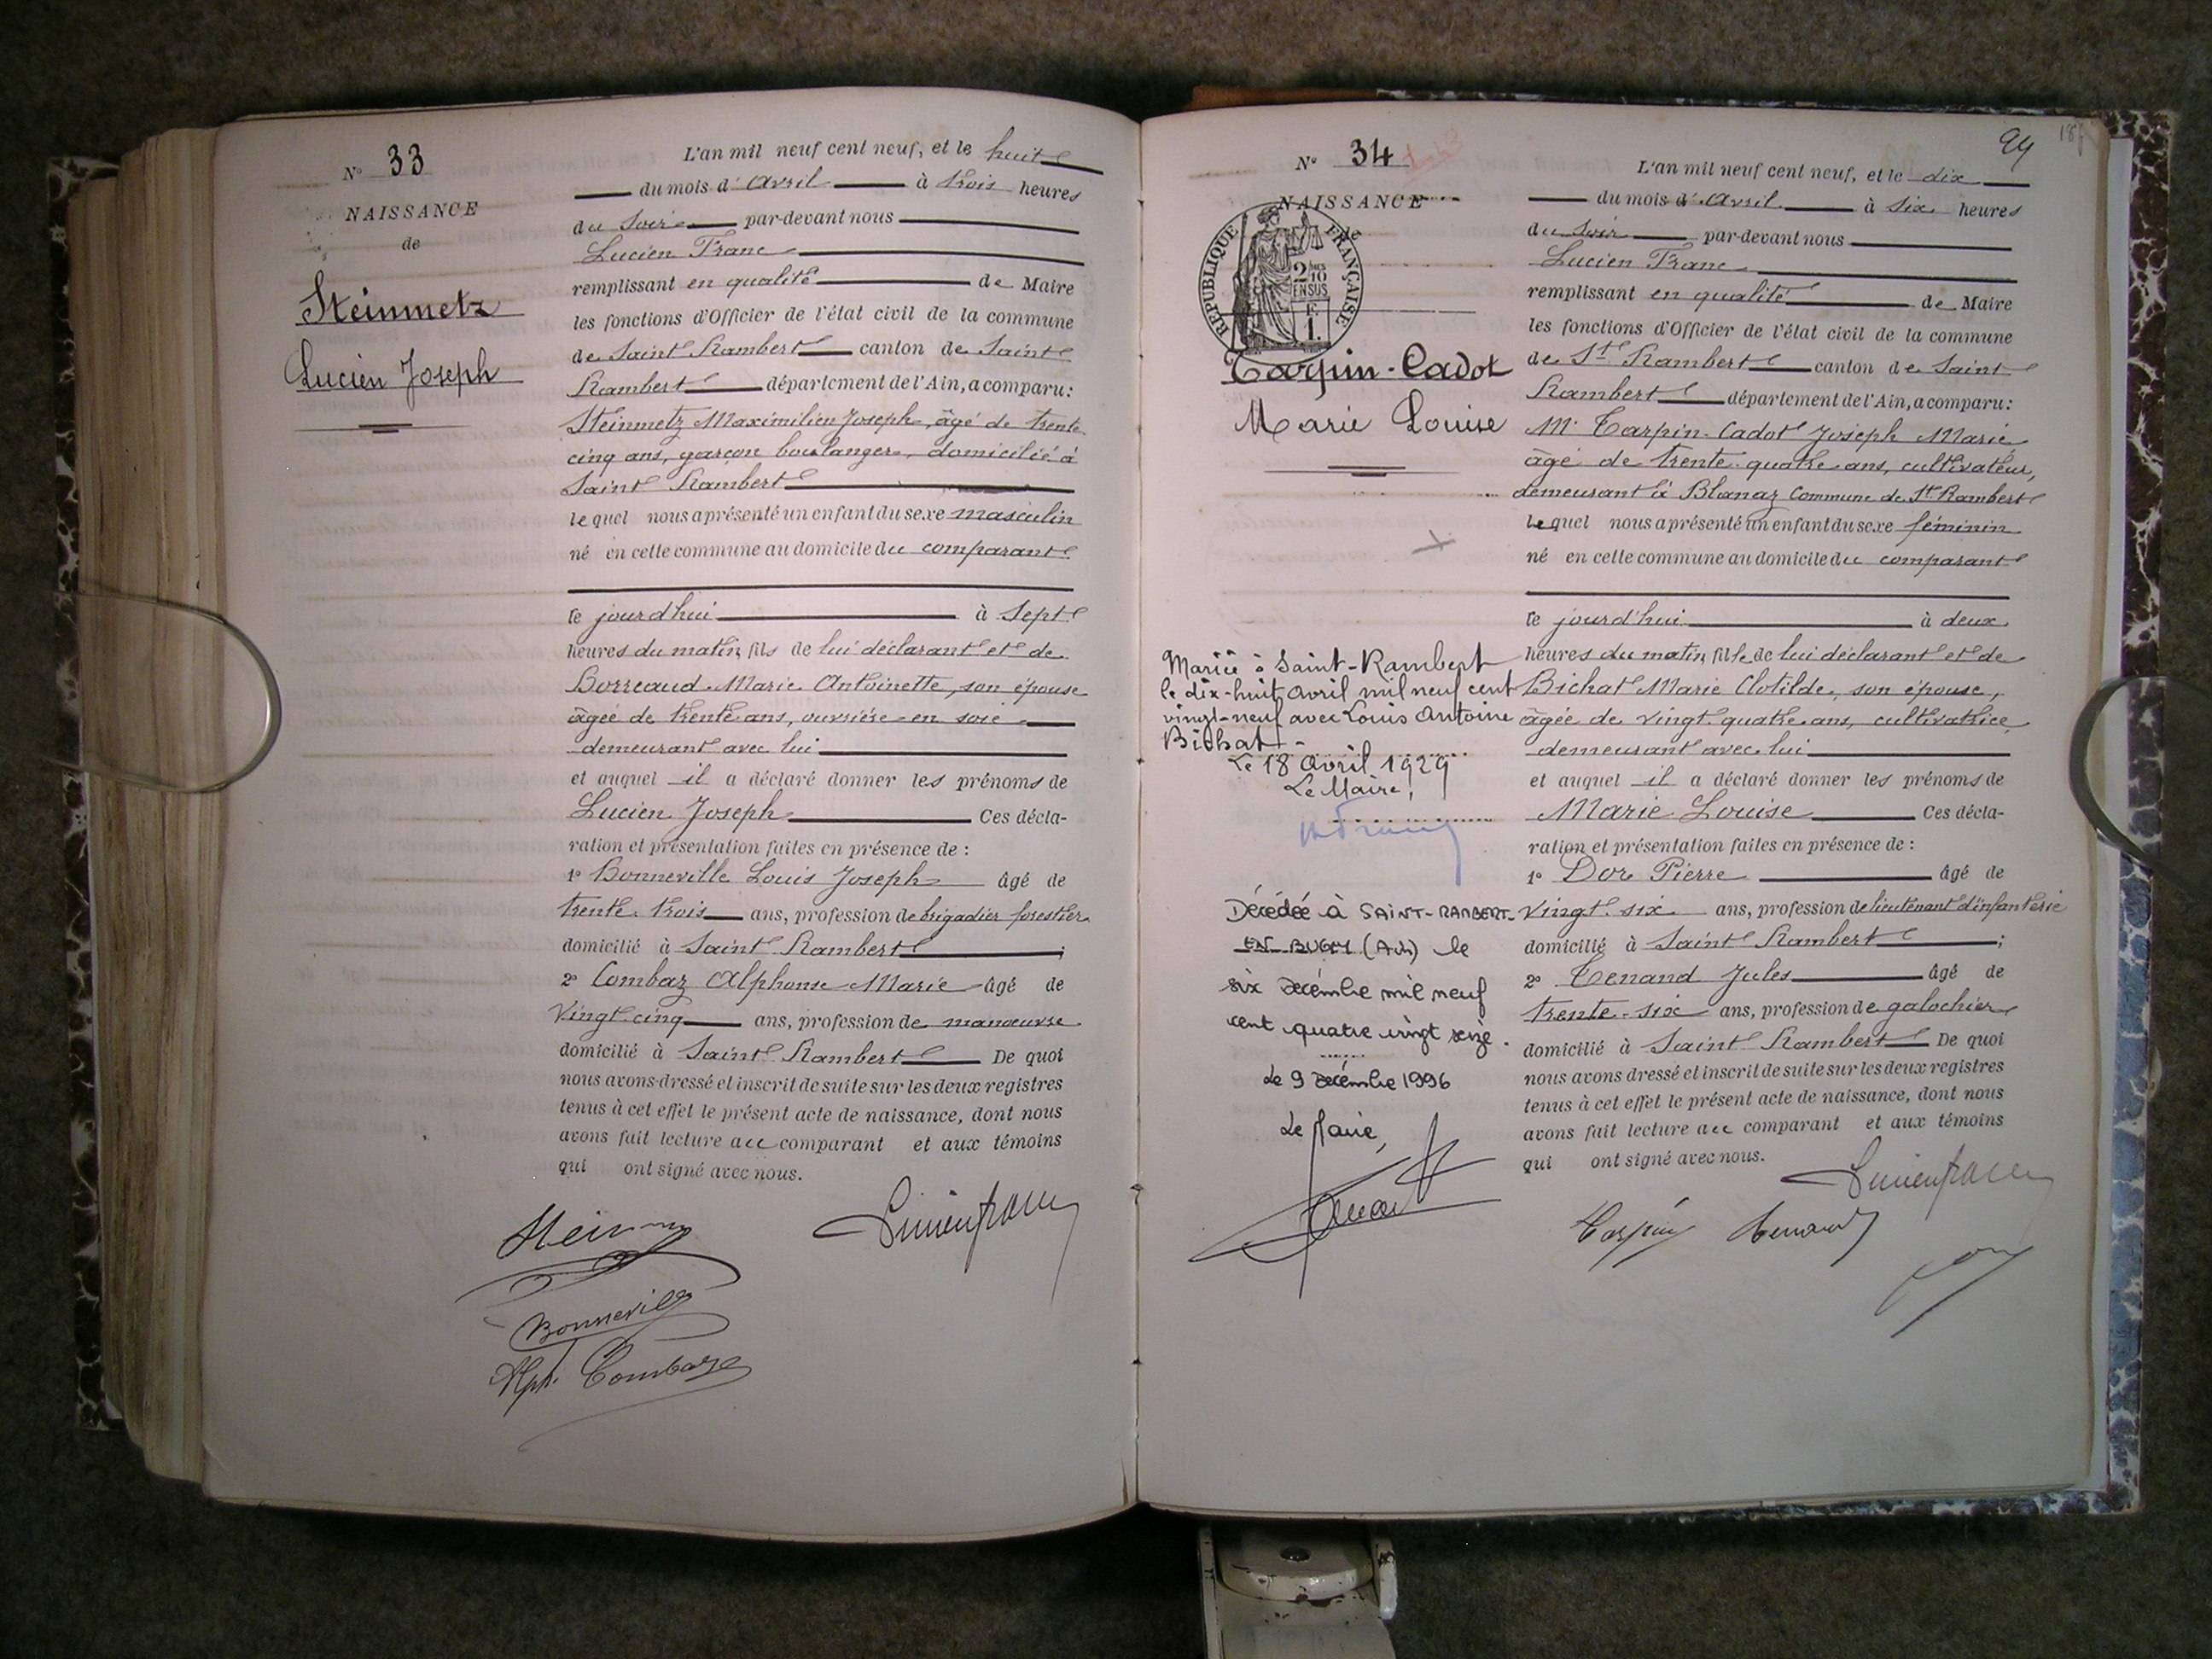 N° 33
NAISSANCE
de
Steinmetz
Lucien Joseph
L'an mil neuf cent neuf, et le huit
du mois d'Avril à trois heures
du Soir par-devant nous
Lucien Franc
remplissant en qualité de Maire
les fonctions d'Officier de l'état civil de la commune
de Saint Rambert canton de Saint
Rambert département de l'Ain, a comparu :
Steinmetz Maximilien Joseph, âgé de trente
cinq ans, garçon boulanger, domicilié à
Saint Rambert
lequel nous a présenté un enfant du sexe masculin
né en cette commune au domicile du comparant
le jourd'hui à Sept
heures du matin, fils de lui déclarant et de
Borreaud Marie Antoinette, son épouse
âgée de trente ans, ouvrière en soie
demeurant avec lui
et auquel il a déclaré donner les prénoms de
Lucien Joseph Ces décla-
ration et présentation faites en présence de :
1° Bonneville Louis Joseph âgé de
trente trois ans, profession de brigadier forestier
domicilié à Saint Rambert ;
2° Combaz Alphonse Marie âgé de
Vingt-cinq ans, profession de manoeuvre
domicilié à Saint Rambert De quoi
nous avons dressé et inscrit de suite sur les deux registres
tenus à cet effet le présent acte de naissance, dont nous
avons fait lecture au comparant et aux témoins
qui ont signé avec nous.
Lucien Franc
Bonneville
Alph. Combaz
99
N° 34
NAISSANCE
de
REPUBLIQUE FRANÇAISE
2/10 EN SUS
Tarpin-Cadot
Marie Louise
L'an mil neuf cent neuf, et le dix
du mois d'Avril à six heures
du Soir par-devant nous
Lucien Franc
remplissant en qualité de Maire
les fonctions d'Officier de l'état civil de la commune
de St Rambert canton de Saint
Rambert département de l'Ain, a comparu :
Mr Tarpin-Cadot Joseph Marie
âgé de trente quatre ans, cultivateur,
demeurant à Blanaz Commune de St Rambert
lequel nous a présenté un enfant du sexe féminin
né en cette commune au domicile du comparant
le jourd'hui à deux
heures du matin, fille de lui déclarant et de
Bichat Marie Clotilde, son épouse,
âgée de vingt quatre ans, cultivatrice
demeurant avec lui
et auquel il a déclaré donner les prénoms de
Marie Louise Ces décla-
ration et présentation faites en présence de :
1° Dor Pierre âgé de
Vingt six ans, profession de lieutenant d'infanterie
domicilié à Saint Rambert ;
2° Tenand Jules âgé de
trente-six ans, profession de galochier
domicilié à Saint Rambert De quoi
nous avons dressé et inscrit de suite sur les deux registres
tenus à cet effet le présent acte de naissance, dont nous
avons fait lecture au comparant et aux témoins
qui ont signé avec nous.
Lucien Franc
Tarpin Tenand
Mariée à Saint-Rambert
le dix-huit avril mil neuf cent
vingt-neuf avec Louis Antoine
Bichat.-
Le 18 avril 1929
Le Maire,
Décédée à SAINT-RAMBERT-
EN-BUGEY (Ain) le
six décembre mil neuf
cent quatre vingt seize.
Le 9 décembre 1996
Le Maire,